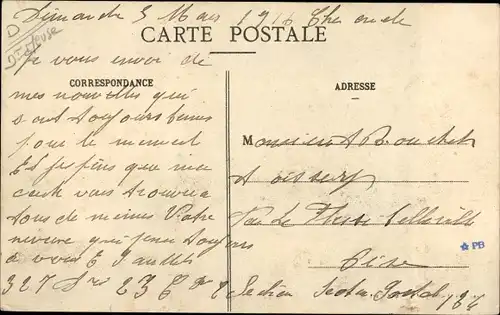 Dimanche 5 Mars 1916 Cher oncle
D
Dt Meuse
CARTE POSTALE
Je vous envoi de
CORRESPONDANCE
ADRESSE
mes nouvelles qui
sont toujours bonnes
pour le moment
Et j'espère que ma
carte vous trouvera
tous de même Votre
neveu qui pense toujours
à vous E
327 23 Cie
Monsieur A Bouchet
A oissery
Par Le Plessis Belleville
Oise
★ PB
Section Secteur Postal